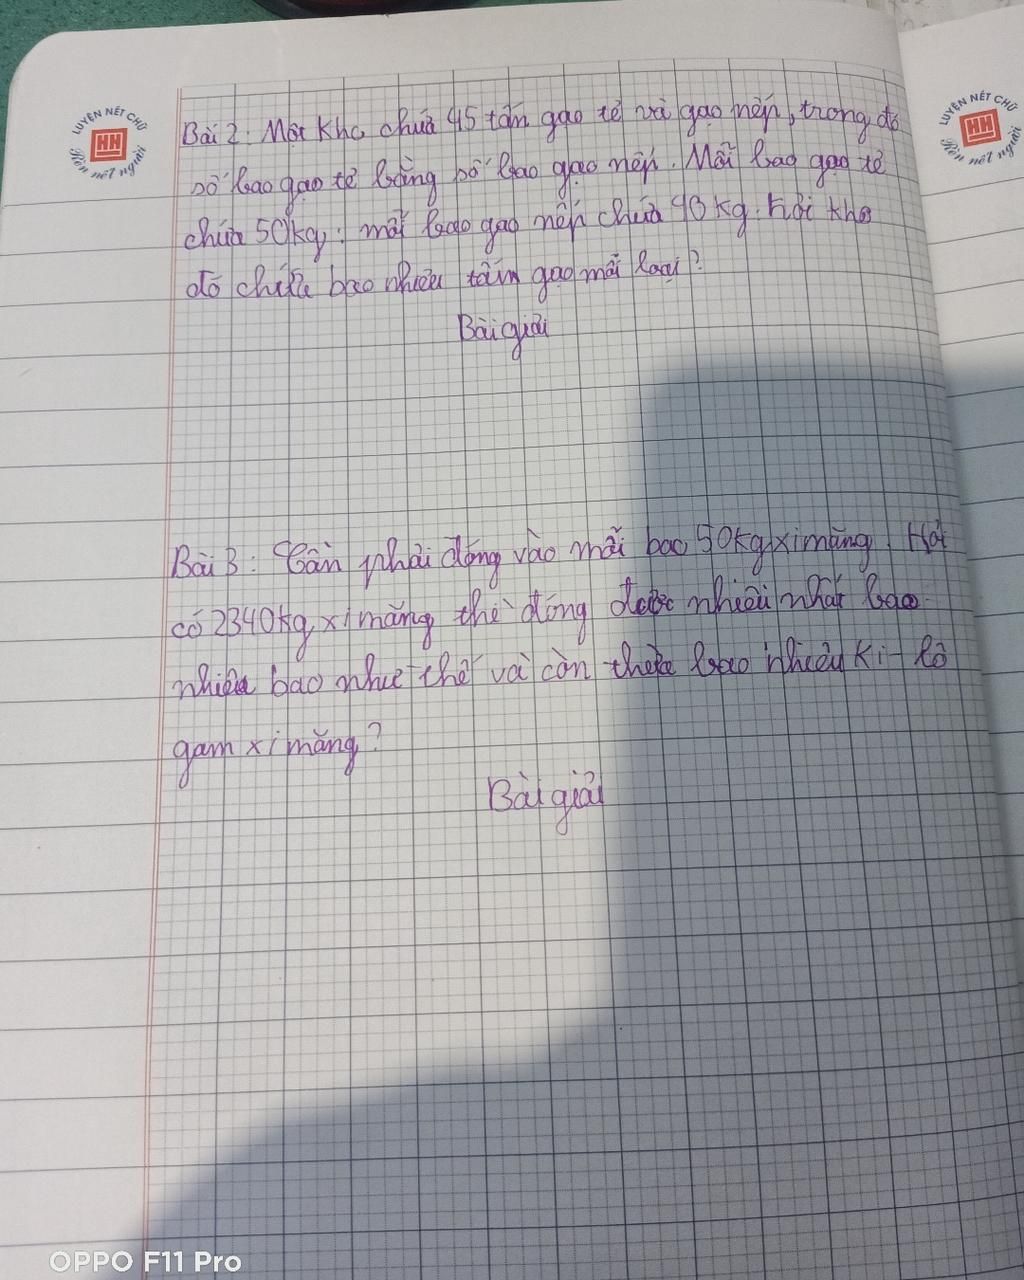 LUYỆN NÉT CHỮ
HH
Rèn nết người
LUYỆN NÉT CHỮ
HH
Rèn nết người
Bài 2: Một kho chứa 45 tấn gạo tẻ và gạo nếp, trong đó
số bao gạo tẻ bằng số bao gạo nếp. Mỗi bao gạo tẻ
chứa 50kg; mỗi bao gạo nếp chứa 40kg. hỏi kho
đó chứa bao nhiêu tấn gạo mỗi loại?
Bài giải
Bài 3: Cần phải đóng vào mỗi bao 50kg xi măng. Hỏi
có 2340kg xi măng thì đóng được nhiều nhất bao
nhiêu bao như thế và còn thừa bao nhiêu ki-lô
gam xi măng?
Bài giải
OPPO F11 Pro